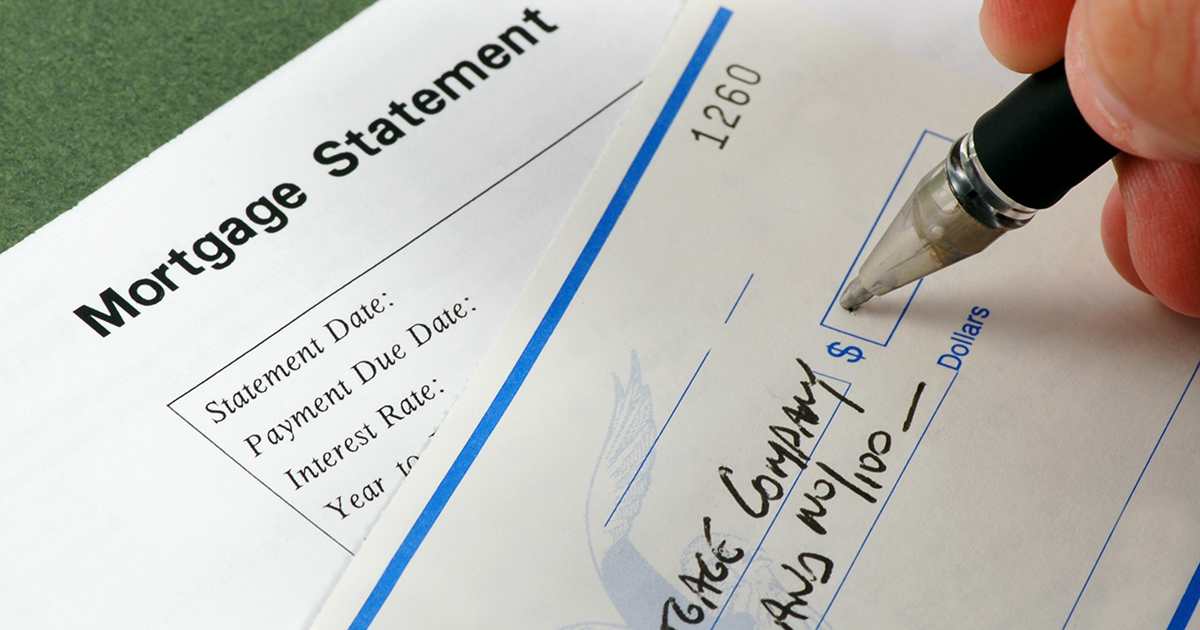 Mortgage Statement
Statement Date:
Payment Due Date:
Interest Rate:
Year to
1260
$
GAGE COMPANY
AND NO/100
Dollars